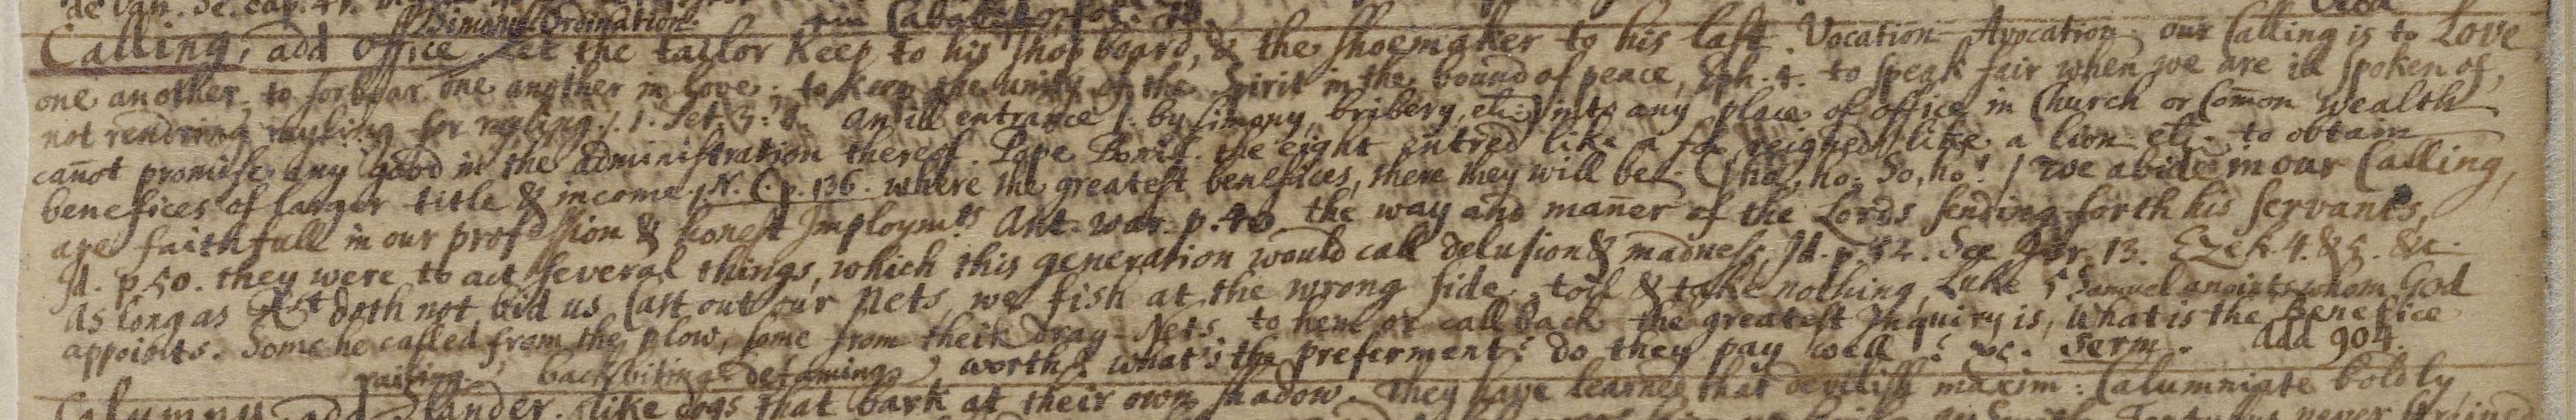 de Van. Sc. cap. 41.
Simony Ordination.
Calling, add office. Let the taylor keep to his shop board, & the shoemaker to his last. Vocation Avocation. our Calling is to Love
one another, to forbear one another in love. to keep the unity of the Spirit in the bound of peace, Eph. 4. to speak fair when we are ill spoken of,
not rendring rayling for rayling. 1. Pet. 3: 8. An ill entrance (by Simony, bribery, etc.) into any place of office in Church or Com̄on wealth
can̄ot promise any good in the administration thereof. Pope Bonif. the eight entred like a fox, reigned like a lion etc. to obtain
benefices of larger title & income. N. C. p. 136. where the greatest benefices, there they will be. (ho, ho; So, ho! / We abide in our Calling,
are faithfull in our profession & honest Imploymts Ant-war-p. 40 the way and man̄er of the Lords sending forth his servants,
Id. p. 50. they were to act several things, which this generation would call delusion & madness, Id. p. 52. See Jer. 13. Ezek. 4. & 5. &c.
As long as Xst doth not bid us Cast out our Nets, we fish at the wrong side, toil & take nothing, Luke 5 Samuel anoints whom God
appoints. Some he called from the plow, some from their Dray-Nets. to hem or call back the greatest Inquiry is, What is the Benefice
worth? what's the preferment? do they pay well? &c. Serm. Add 904.
railing, backbiting defaming
Calumny add Slander. like dogs that bark at their own shadow. They have learned that devilish maxim: Calumniate boldly,